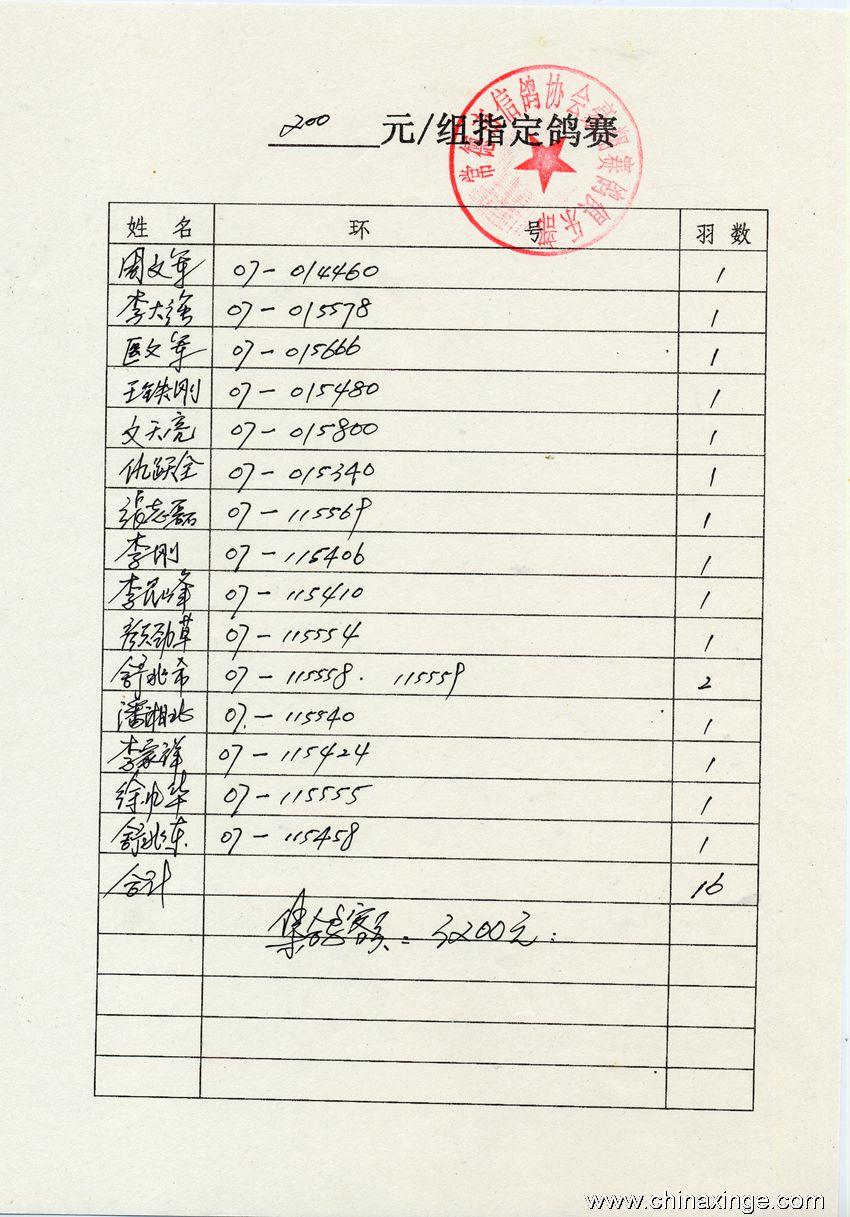 200 元/组指定鸽赛
常德市信鸽协会 赛鸽俱乐部
姓 名 环 号 羽 数
周文军 07-014460 1
李大强 07-015578 1
匡文军 07-015666 1
王铁刚 07-015480 1
文天亮 07-015800 1
仇跃全 07-015340 1
张志磊 07-115569 1
李刚 07-115406 1
李昆峰 07-115410 1
颜劲草 07-115554 1
舒兆希 07-115558. 115559 2
潘湘北 07-115540 1
李家祥 07-115424 1
徐水华 07-115555 1
舒兆东 07-115458 1
合计 16
集鸽总额: 3200元:
www.chinaxinge.com